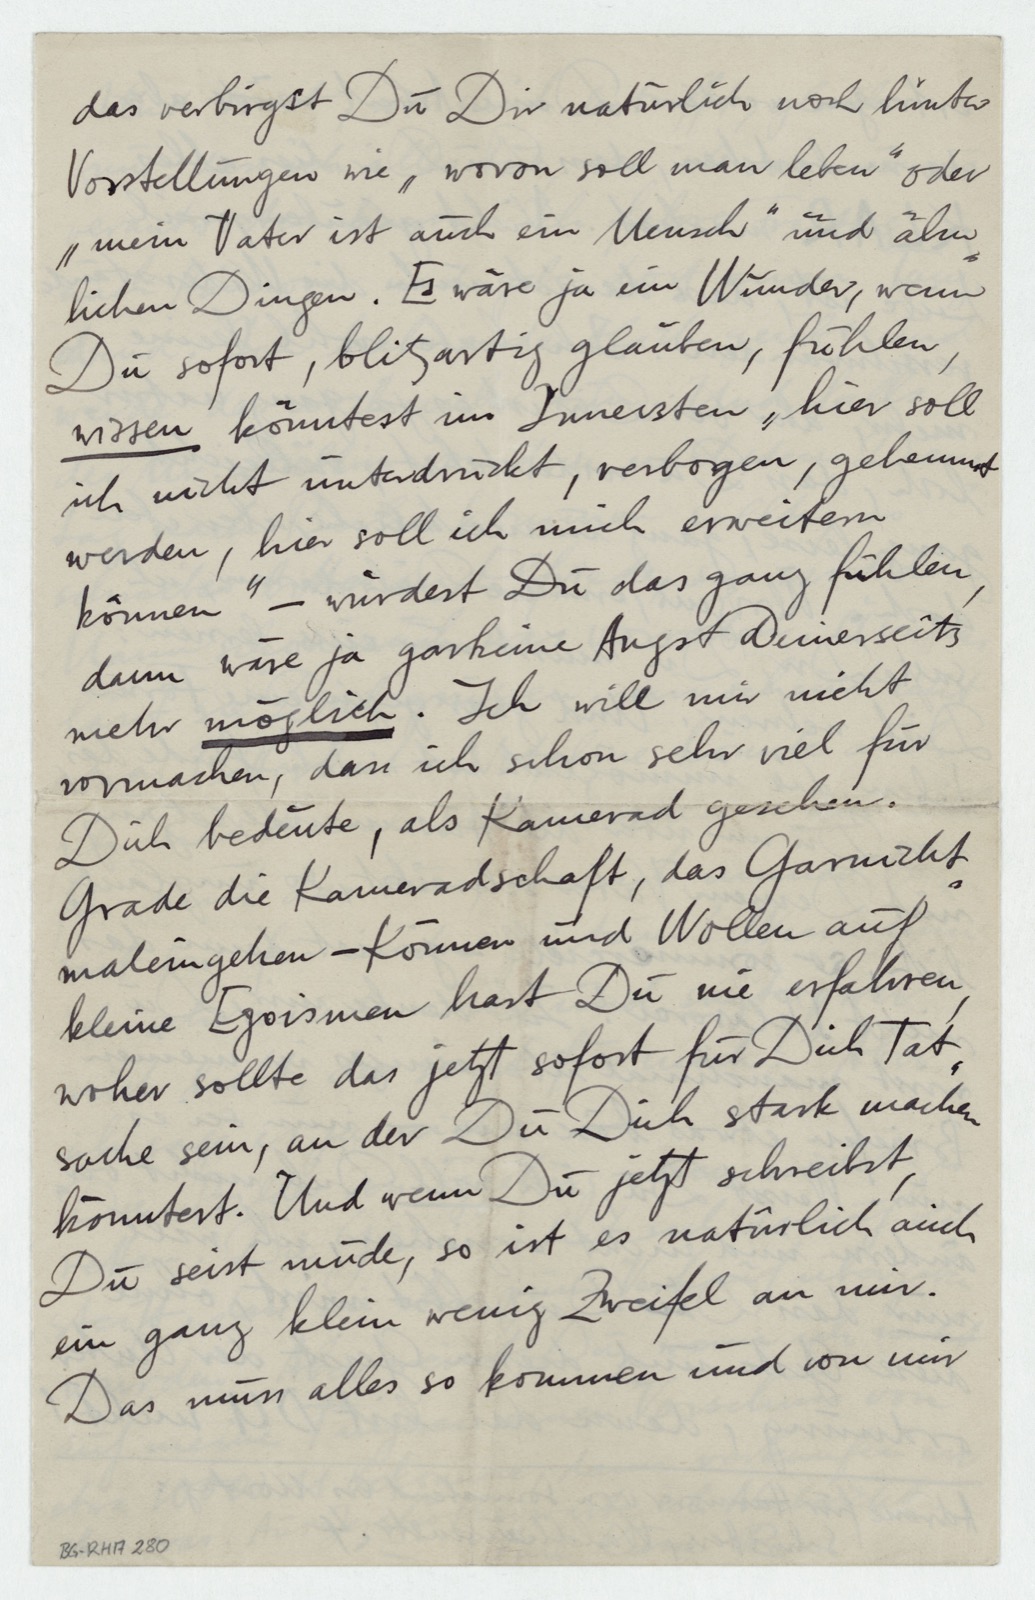 das verbirgst Du Dir natürlich noch hinter
Vorstellungen wie „wovon soll man leben“ oder
„mein Vater ist auch ein Mensch“ und ähn-
lichen Dingen. Es wäre ja ein Wunder, wenn
Du sofort, blitzartig glauben, fühlen,
wissen könntest im Innersten „hier soll
ich nicht unterdrückt, verbogen, gehemmt
werden, hier soll ich mich erweitern
können“ – würdest Du das ganz fühlen,
dann wäre ja garkeine Angst Deinerseits
mehr möglich. Ich will mir nicht
vormachen, dass ich schon sehr viel für
Dich bedeute, als Kamerad gesehen.
Grade die Kameradschaft, das Garnicht-
maleingehen–Können und Wollen auf
kleine Egoismen hast Du nie erfahren,
woher sollte das jetzt sofort für Dich Tat-
sache sein, an der Du Dich stark machen
könntest. Und wenn Du jetzt schreibst,
Du seist müde, so ist es natürlich auch
ein ganz klein wenig Zweifel an mir.
Das muss alles so kommen und von mir
BG-RHA 280